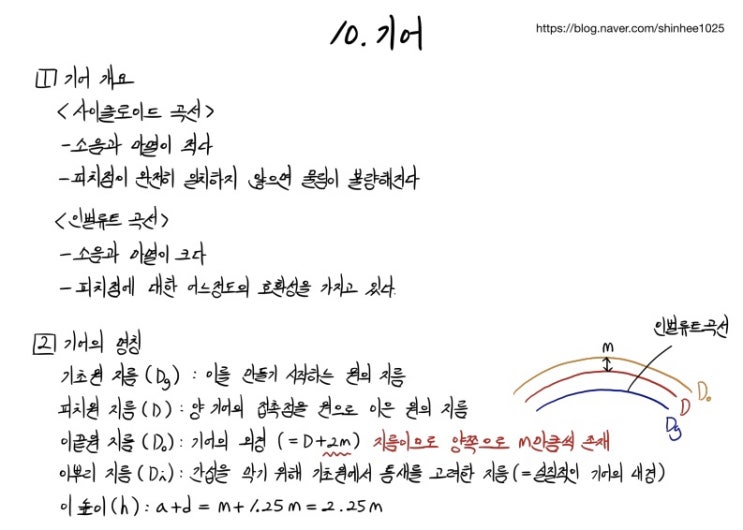 10. 기어
https://blog.naver.com/shinhee1025
1 기어 개요
<사이클로이드 곡선>
- 소음과 마멸이 적다
- 피치점이 완전히 일치하지 않으면 물림이 불량해진다
<인벌류트 곡선>
- 소음과 마멸이 크다
- 피치점에 대한 어느정도의 호환성을 가지고 있다.
2 기어의 명칭
인벌류트곡선
m
기초원 지름(Dg) : 이를 만들기 시작하는 원의 지름
피치원 지름(D) : 양 기어의 접촉점을 원으로 이은 원의 지름
D₀
D
Dg
이끝원 지름(D₀) : 기어의 외경 (= D+2m) 지름이므로 양쪽으로 m만큼씩 존재
이뿌리 지름(Di) : 간섭을 막기 위해 기초원에서 틈새를 고려한 지름(= 실질적인 기어의 내경)
이 높이(h) : a+d = m+1.25m = 2.25m